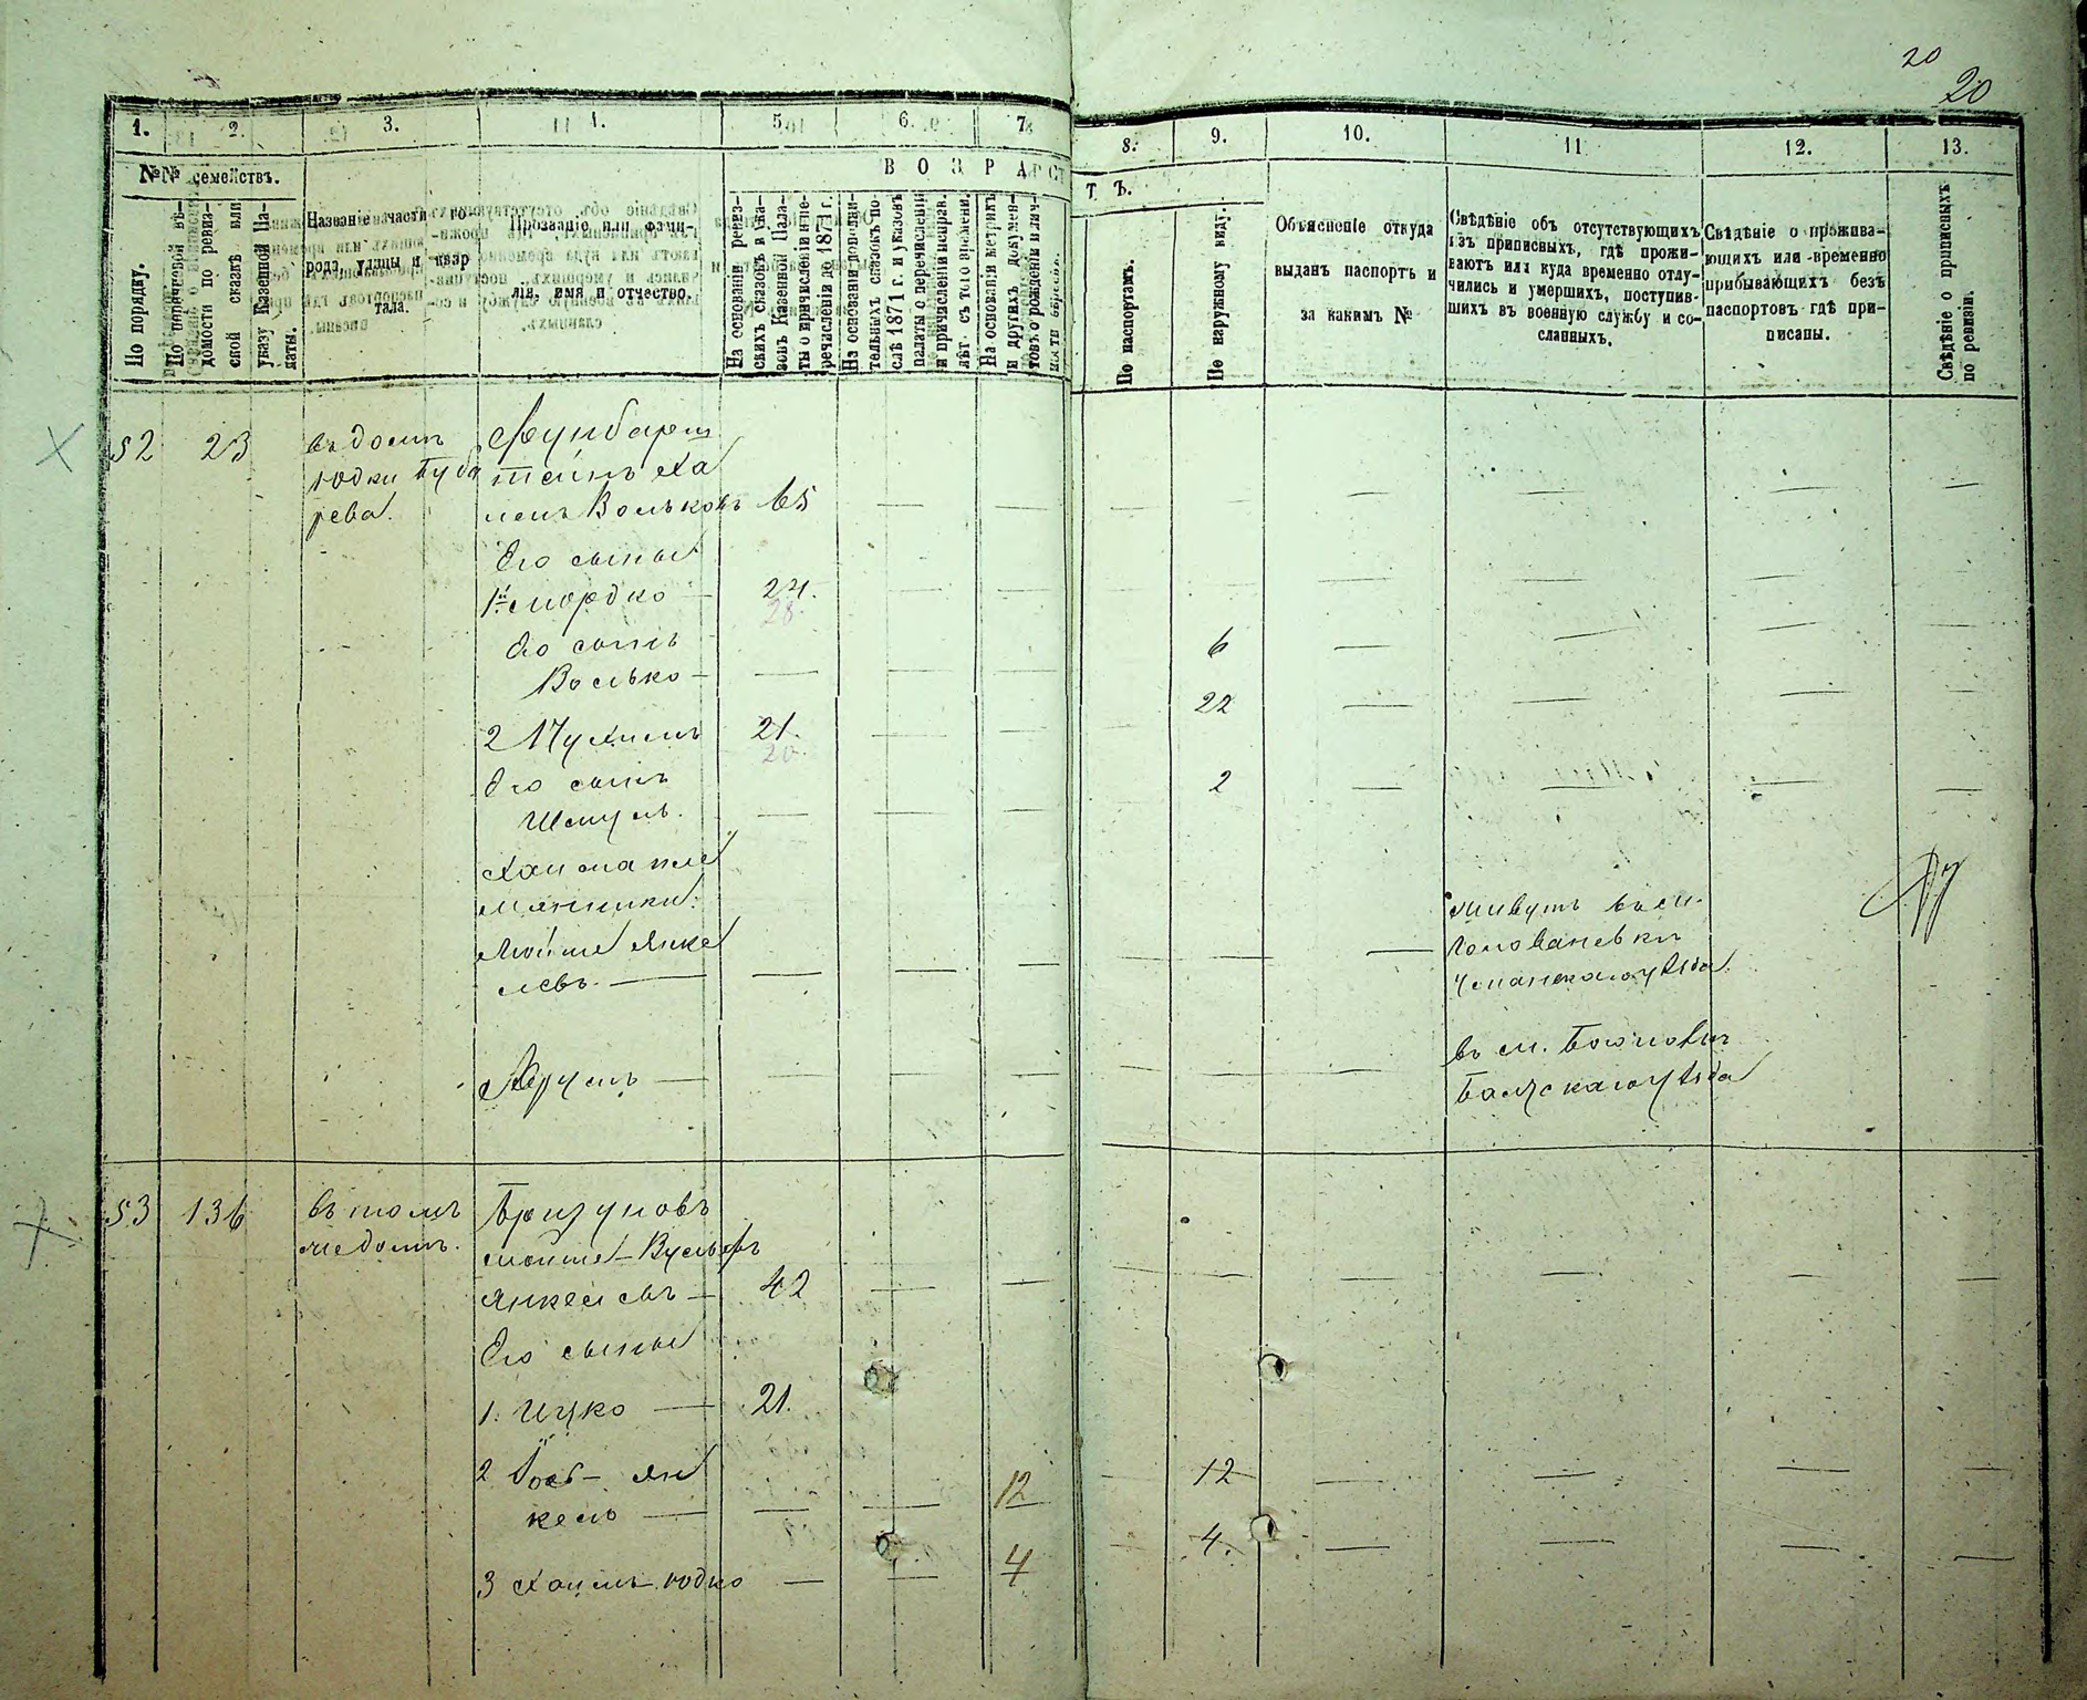 20
20
1. 2. 3. 4. 5. 6. 7. 8. 9. 10. 11 12. 13.
№№ семействъ.
ВОЗРАСТЪ.
По порядку.
По
домости по ревиз-
ской сказкѣ или
указу Казенной Па-
латы.
Названіе части го-
рода, улицы и квар
тала.
Прозваніе или Фами-
лія, имя и отчество.
На основаніи ревиз-
скихъ сказокъ и ука-
зовъ Казенной Пала-
ты о причисленіи и пе-
речисленіи до 1871 г.
На основаніи дополни-
тельныхъ сказокъ по-
слѣ 1871 г. и указовъ
палаты о перечисленіи
и причисленіи и исправ.
лѣт. съ того времени.
На основаніи метрикъ
и другихъ докумен-
товъ о рожденіи и лич-
По паспортамъ.
По наружному виду.
Объясненіе откуда
выданъ паспортъ и
за какимъ №
Свѣдѣніе объ отсутствующихъ
изъ приписныхъ, гдѣ прожи-
ваютъ или куда временно отлу-
чились и умершихъ, поступив-
шихъ въ военную службу и со-
сланныхъ.
Свѣдѣніе о прожива-
ющихъ или временно
прибывающихъ безъ
паспортовъ гдѣ при-
писаны.
Свѣдѣніе о приписныхъ
по ревизіи.
52 23 въ домѣ
тейнъ Ха
рева. Вольковъ 65 — —
Его сыны
1й Мордко — 24. — —
28.
Его сынъ 6 —
Волько — — — —
22 —
2 Нухимъ 21. — —
20.
Его сынъ 2 —
Шмуль. — — —
Хаима пле
мянники:
Мойше Янке
левъ. — — — —
живутъ въ м.
Голованевкѣ
Уманскаго уѣзда
— — —
въ м.
Балтскаго уѣзда
53 136 въ томъ
же домѣ.
Мойше-Вульфъ
Янкелевъ — 42 — —
Его сыны
1. Ицко — 21.
2 Іосъ-Ян
кель — — — 12 12 —
3 Хаимъ-Юдко — — 4 4. —